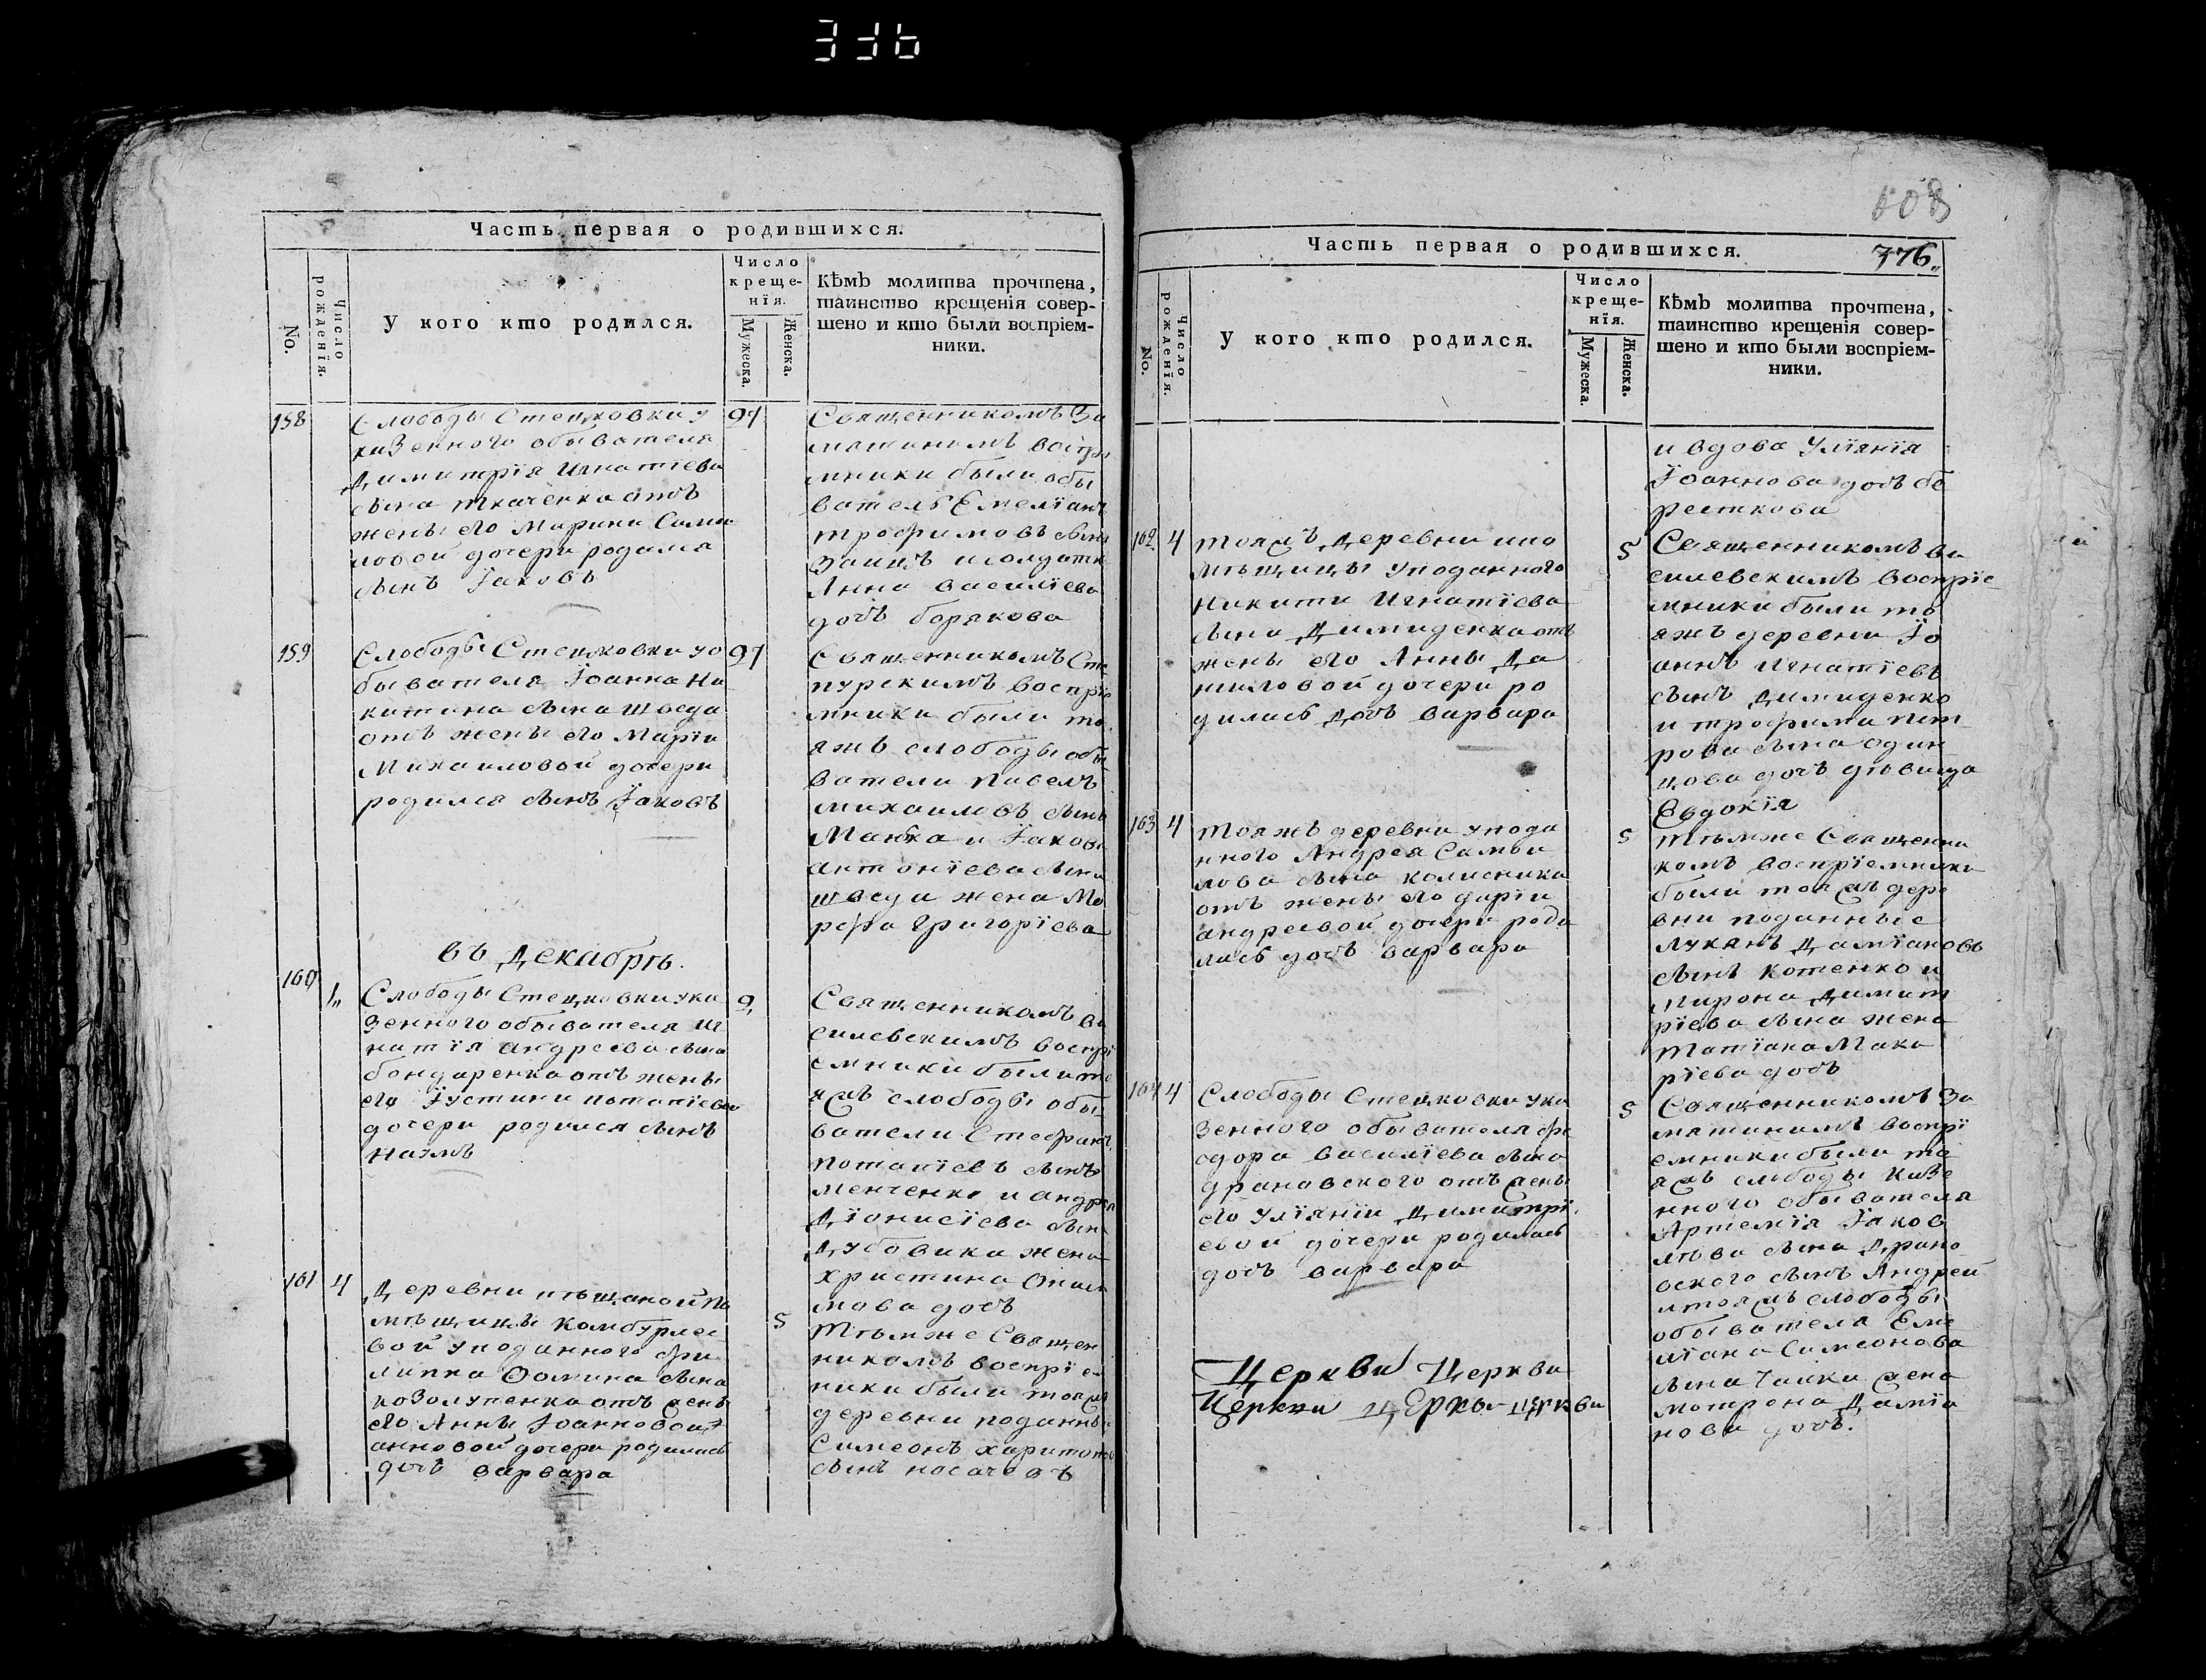 336
Часть первая о родившихся.
No.
Число рожденія.
У кого кто родился.
Число
креще-
нїя.
Мужеска.
Женска.
Кѣмъ молитва прочтена,
таинство крещенія совер-
шено и кто были воспріем-
ники.
158
Слободы Стецковки у
казенного обывателя
Димитрїя Игнатїева
сына Ткаченка отъ
жены его Марини Сами
ловой дочери родился
сынъ Їаковъ
Священникомъ За
мники были обы
ватель Емелїанъ
Трофимовъ сынъ
Заицъ и солдатк
Анна Василїева
дочь борякова
159
Слободы Стецковки уо
бывателя Їоанна Ни
китина сына Шведа
отъ жены его Марїи
Михаиловой дочери
родился сынъ Їаковъ
Священникомъ Сте
пурскимъ воспрїе
мники были то
яжъ слободы обы
ватели Павелъ
Михаиловъ сынъ
и Їакова
Антонїева сына
шведа жена Ма
рфа Григорїева
въ Декабрѣ.
160
1
Слободы Стецковки ука
зенного обывателя Иг
натїя Андреева сына
бондаренка отъ жены
его Їустини Потапїевой
дочери родился сынъ
Наумъ
9
Священникомъ Ва
силевскимъ воспрї
емники были то
яжъ слободы обы
ватели Стефанъ
Потапїевъ сынъ
Менченко и Андрея
Дїонисїева сына
Дубовика жена
Христина
мова дочь
161
4
Деревни пѣщаной по
мѣщицы Комбурлее
вой уподанного фи
липпа Фомина сына
козолупенка отъ жены
его Анны Їоанновой
анновой дочери родилась
дочь варвара
5
Тѣмже Священ
никомъ воспрїем
ники были тояжъ
деревни поданны
Симеонъ Харитонов
сынъ носачевъ
108
Часть первая о родившихся.
776
No.
Число рожденїя.
У кого кто родился.
Число
креще-
нїя.
Мужеска.
Женска.
Кѣмъ молитва прочтена,
таинство крещенія совер-
шено и кто были воспріем-
ники.
и вдова Улїянїя
Їоаннова дочь бе
ресткова
162
4
Тояжъ Деревни ипо
мѣщицы уподанного
Никити Игнатїева
сына Димиденка отъ
жены его Анны Да
ниловой дочери ро
дилась дочь варвара
5
Священникомъ Ва
силевскимъ воспрїе
мники были то
яжъ деревни Їо
аннъ Игнатїевъ
сынъ Димиденко
и трофима Пет
рова сына один
цова дочь дѣвица
Евдокїя
163
4
Тояжъ деревни упода
нного Андрея Самои
лова сына колисника
отъ жены его дарїи
андреевой дочери роди
лась дочь варвара
5
Тѣмже Священни
комъ воспрїемники
были тояжъ дере
вни поданные
Лукянъ Дамїановъ
сынъ Котенко и
Мирона Димит
рїева сына жена
Татїана Мака
рїева дочь
164
4
Слободы Стецковки ука
зенного обывателя фе
одора Василїева сына
драновского отъ жены
его Улїянїи Димитрї
евой дочери родилась
дочь варвара
5
Священникомъ За
матинимъ воспрї
емники были то
яжъ слободы казе
нного обывателя
Артемїя Їаков
лева сына Драно
вского сынъ Андрей
итояжъ слободы
обывателя Еме
лїана Симеонова
сына Чайки жена
Мотрона Дамїа
нова дочь.
Церкви Церкви
Церкви Церкви Церкви